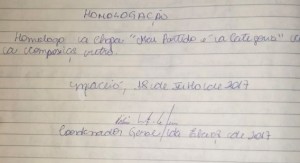 HOMOLOGAÇÃO
Homologo a chapa "Meu Partido é a Categoria" 
a composição
18 de Julho de 2017
Coordenador Geral da Eleição de 2017